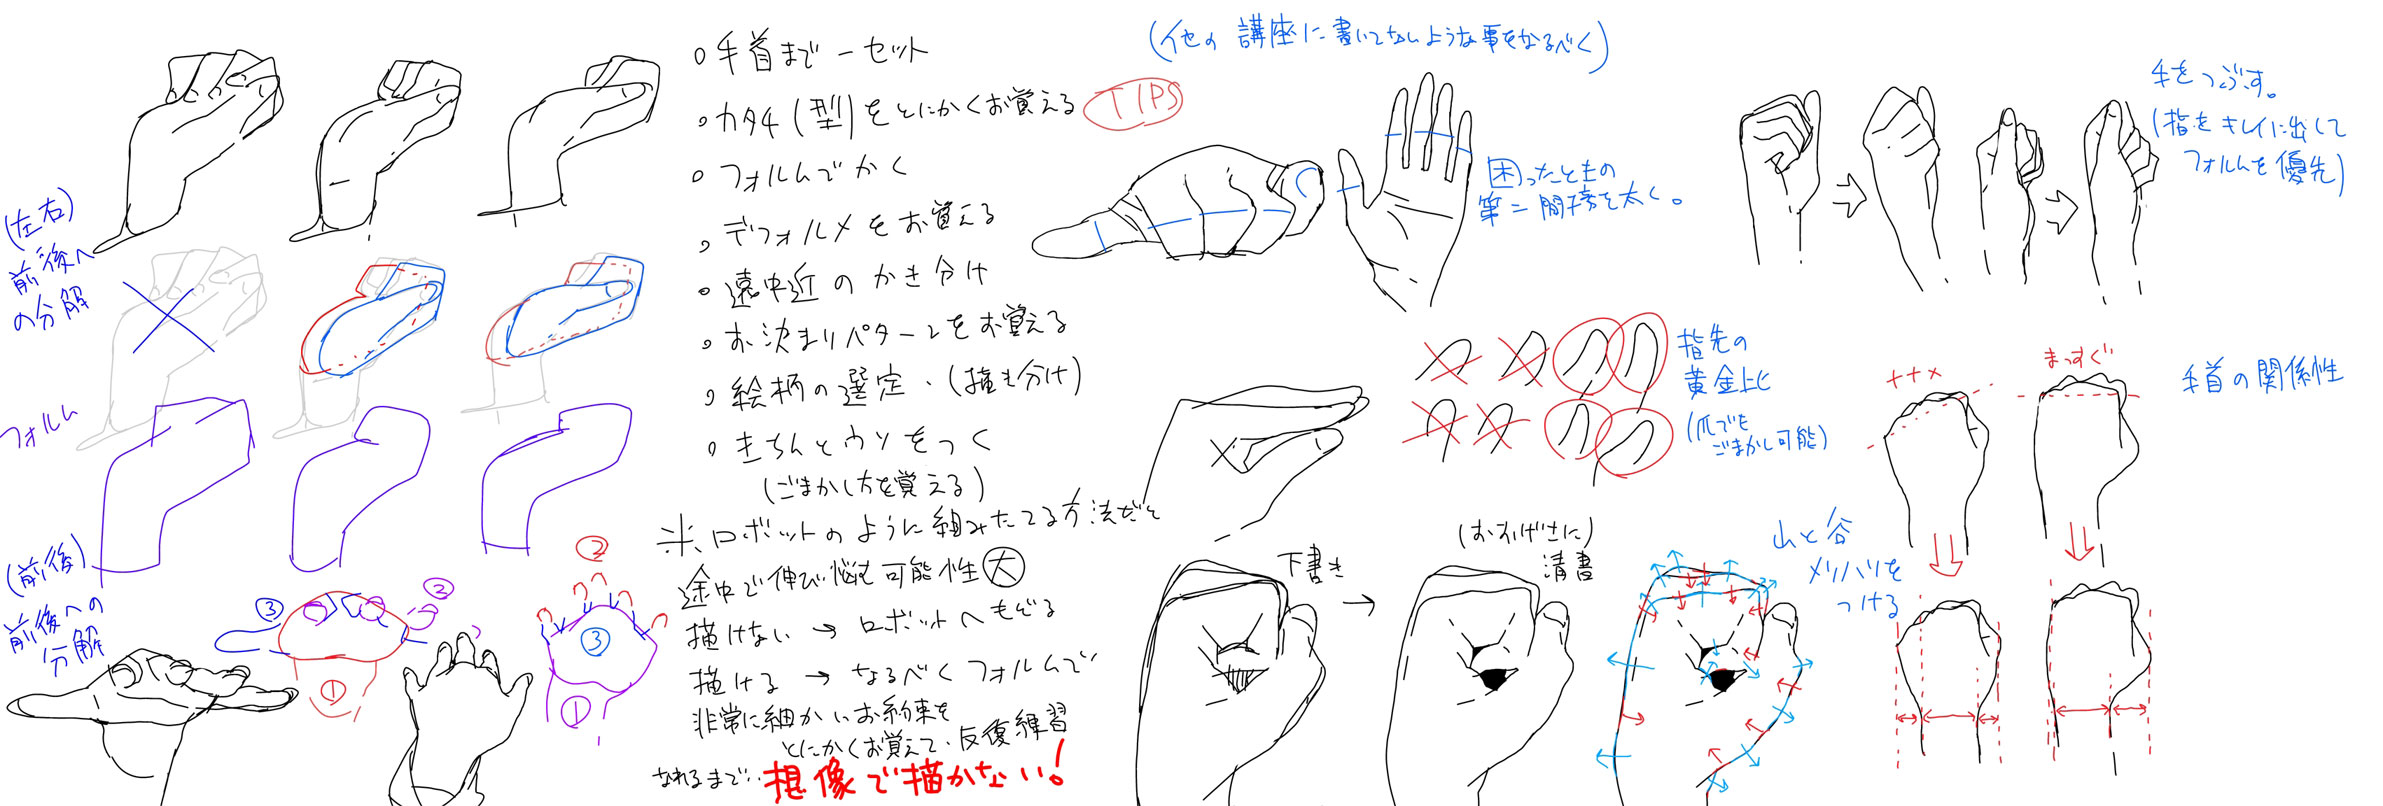 (左右)
前後へ
の分解
フォルム
(前後)
前後への
分解
③
①
②
②
③
①
○手首まで一セット
○カタチ(型)をとにかくお覚える
○フォルムでかく
○デフォルメをお覚える
○遠中近のかき分け
○お決まりパターンをお覚える
○絵柄の選定・(描き分け)
○きちんとウソをつく
(ごまかし方を覚える)
※ロボットのように組みたてる方法だと
途中で伸び悩む可能性大
描けない→ロボットへもどる
描ける→なるべくフォルムで
非常に細かいお約束を
とにかくお覚えて、反復練習
なれるまで‥想像で描かない!
(他の講座に書いてないような事をなるべく)
TIPS
困ったときの
第二関接を太く。
手をつぶす。
(指をキレイに出して
フォルムを優先)
指先の
黄金比
(爪でも
ごまかし可能)
ナナメ
まっすぐ
手首の関係性
下書き
(おおげさに)
清書
山と谷
メリハリを
つける